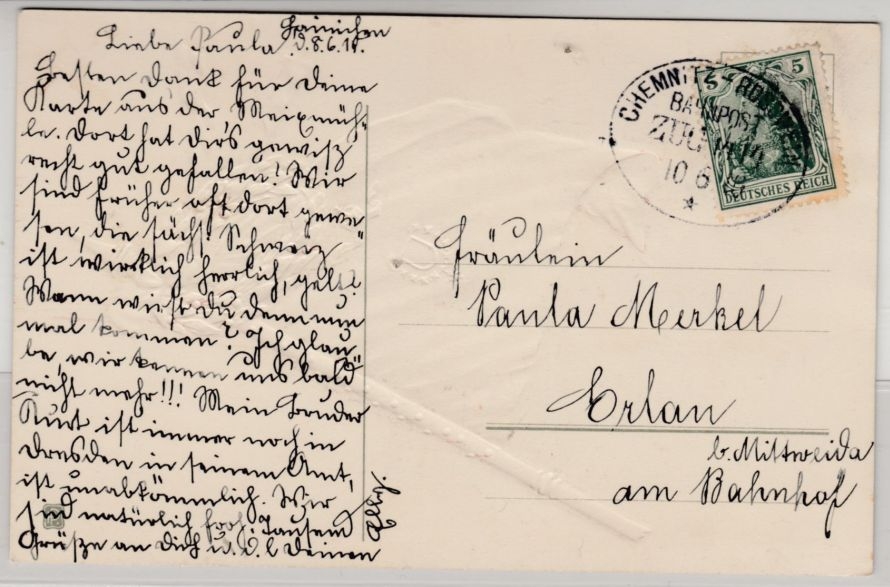 Hainichen
Liebe Paula d. 8.6.
Besten Dank für Deine
Karte aus der Meixmüh-
le. Dort hat Dir's gewisz
recht gut gefallen! Wir
sind früher oft dort gewe-
sen, die sächs. Schweiz
ist wirklich herrlich, gelt?
Wann wirst Du denn nun
mal kommen? Ich glau-
be, wir kennen uns bald
nicht mehr!!! Mein Bruder
Kurt ist immer noch in
Dresden in seinem Amt,
ist unabkömmlich. Wir
sind natürlich froh. Tausend
Grüße an Dich u. d. l Deinen
CHEMNITZ - ROSSWEIN
BAHNPOST
ZUG
10 6
5
DEUTSCHES REICH
Fräulein
Paula Merkel
Erlau
b. Mittweida
am Bahnhof